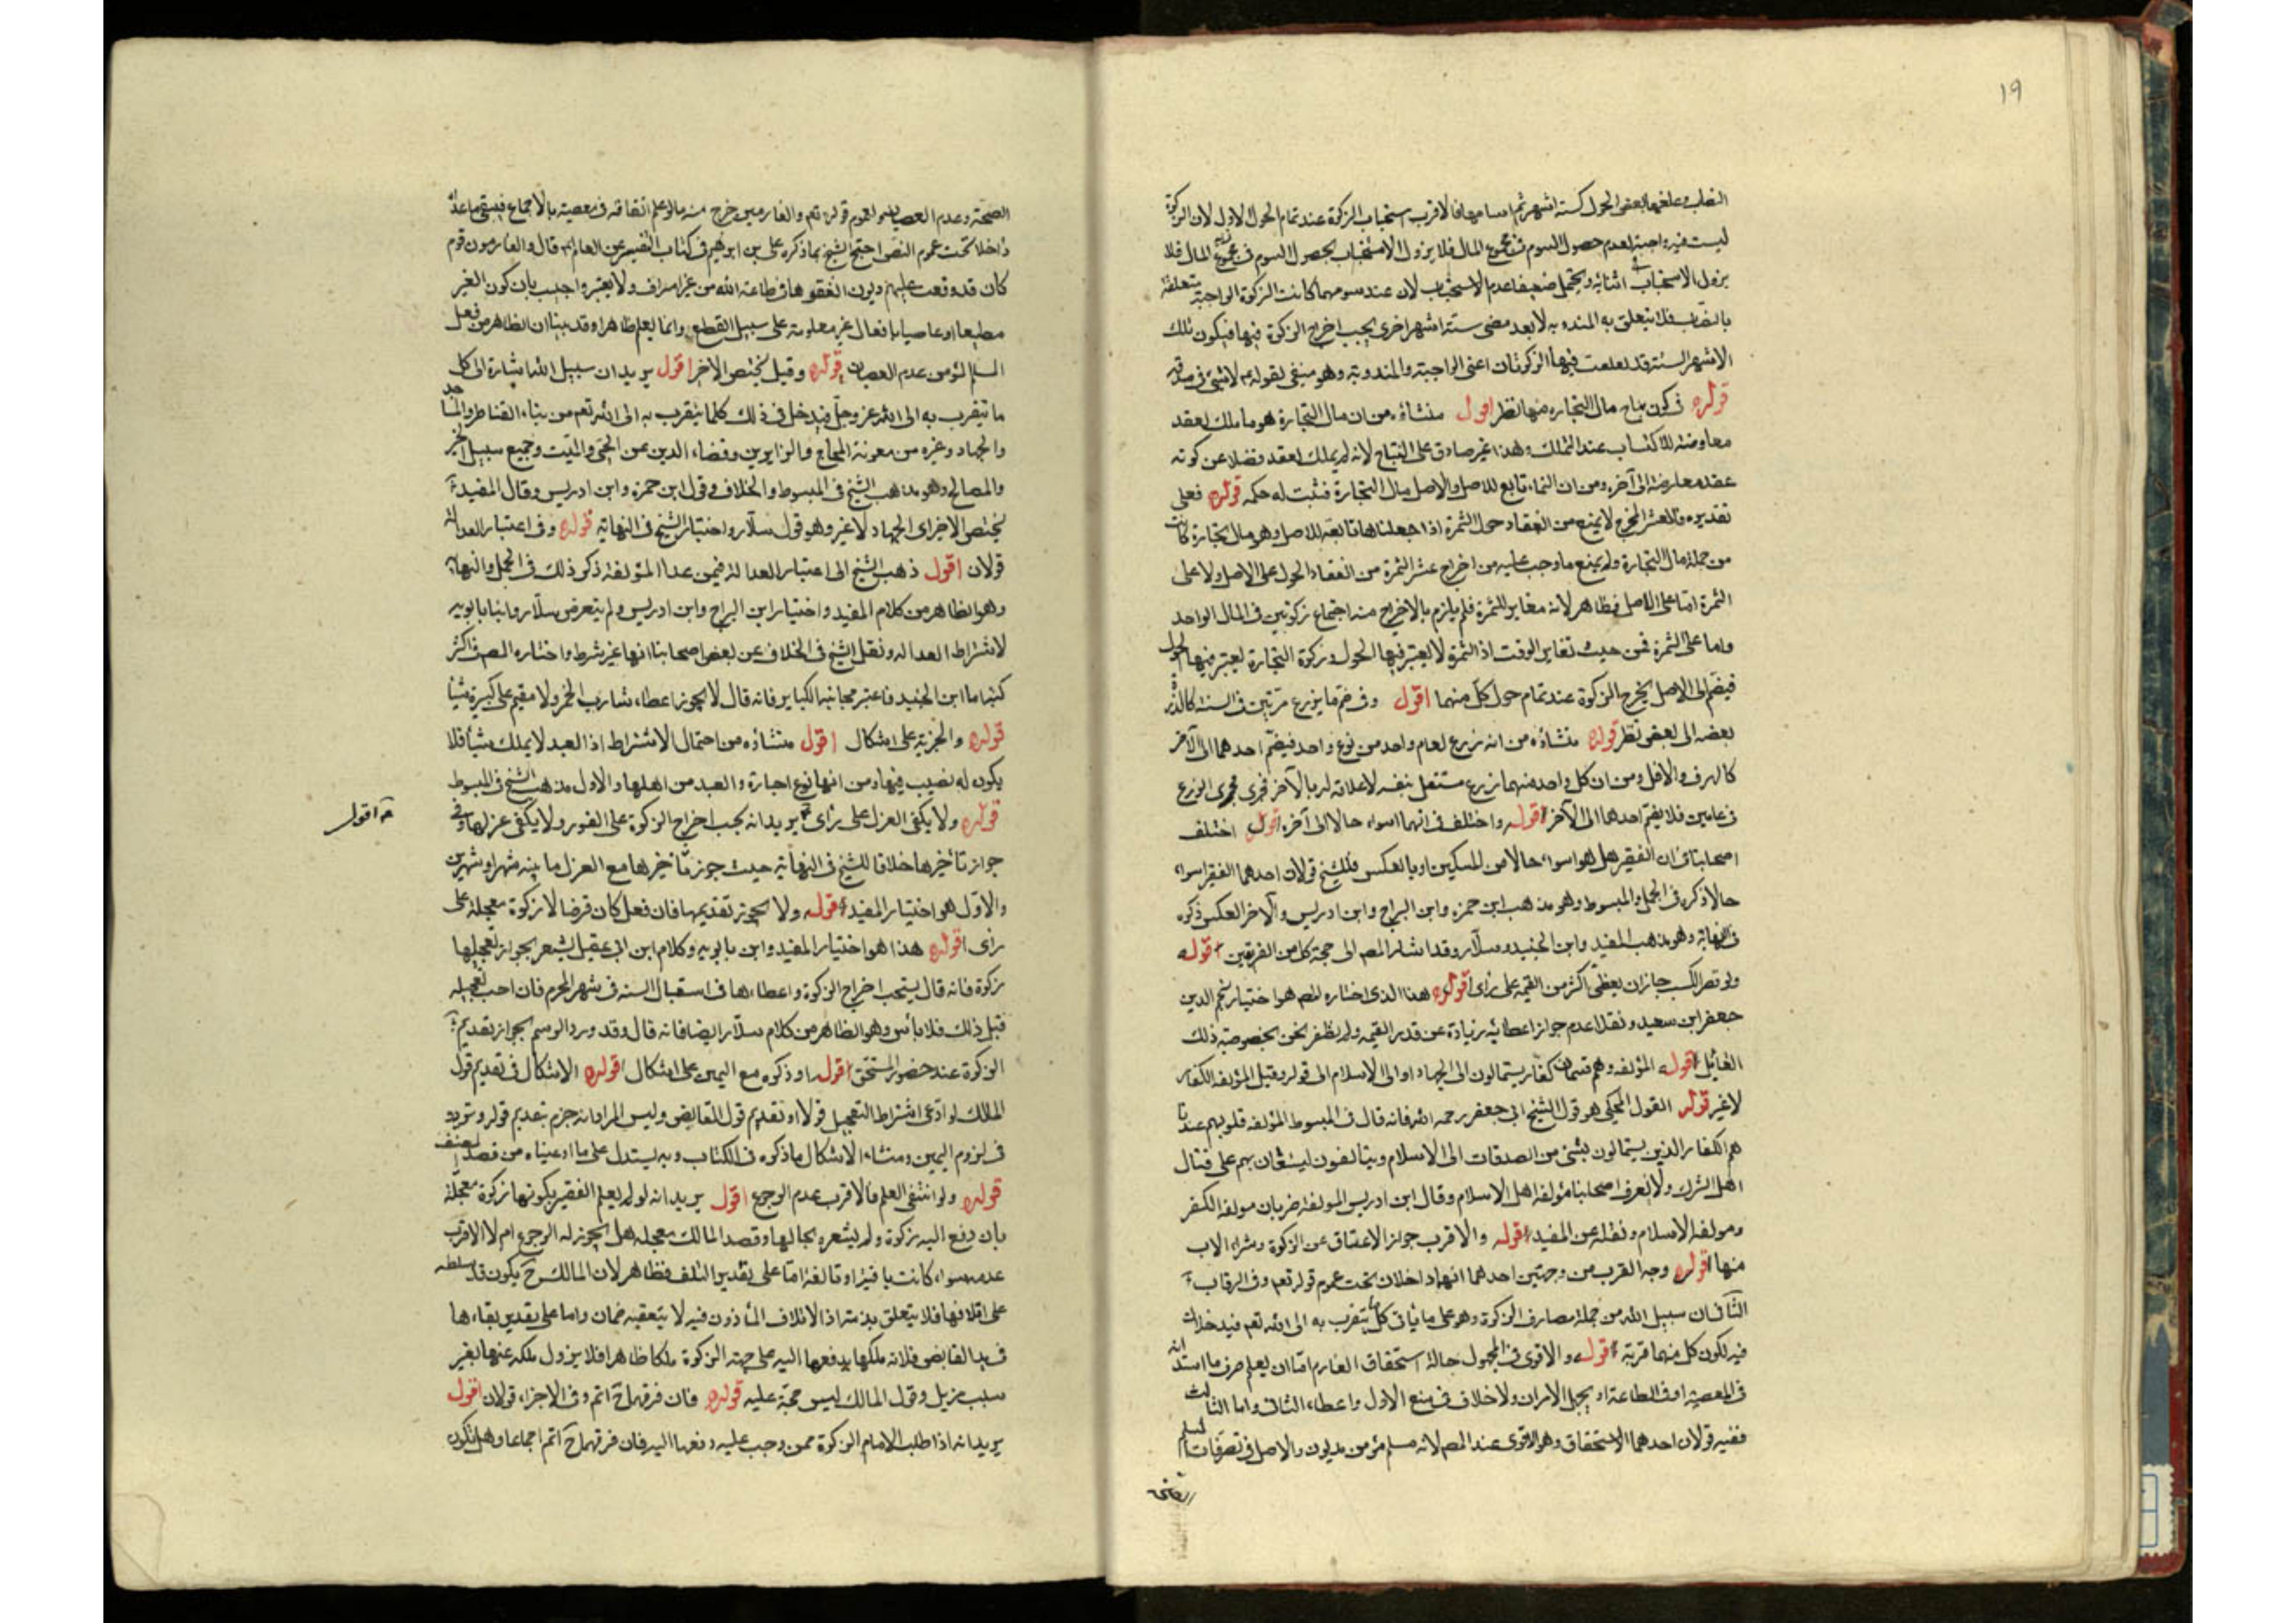 ١٩
النصاب وعلفها بعض الحول كستة اشهر ثم اسامها فالاقرب استحباب الزكوة عند تمام الحول الاول لان الزكوة
ليست فيه واجبة لعدم حصول السوم في مجموع المال فلا يزول الاستحباب بحصول السوم في مجموع المال فلا
يزول الاستحباب اثنائه ويحتمل ضعيفا عدم الاستحباب لان عند سومهما كانت الزكوة الواجبة متعلقة
بالنصاب فلا يتعلق به المندوبة لا بعد مضى ستة اشهر اخرى يجب اخراج الزكوة فيها فيكون تلك
الاشهر الستة قد تعلقت فيها الزكوتان اعنى الواجبة والمندوبة وهو منفى لقوله ع لاثنى في صدقة
قوله في كون نتاج مال التجارة منها نظر اقول منشاؤه من ان مال التجارة هو ما ملك بعقد
معاوضة للاكتساب عند التملك وهذا غير صادق على النتاج لانه لم يملك بعقد فضلا عن كونه
عقد معاوضة الى آخره ومن ان النماء تابع للاصل والاصل مال التجارة فثبت له حكمه قوله فعلى
تقديره فالعشر المخرج لا يمنع من انعقاد حول الثمرة اذا جعلناها تابعة للاصل وهو مال تجارة كانت
من جملة مال التجارة ولم يمنع ما وجب عليه من اخراج عشر الثمرة من انعقاد الحول على الاصل ولا على
الثمرة اما على الاصل فظاهر لانه مغاير للثمرة فلم يلزم بالاخراج منه اجتماع زكوتين في المال الواحد
واما على الثمرة فمن حيث تغاير الوقت اذ الثمرة لا يعتبر فيها الحول وزكوة التجارة يعتبر فيها الحول
فيضم الى الاصل يخرج الزكوة عند تمام حول كل منهما اقول وفي ضم ما يزرع مرتين في السنة كالذرة
بعضه الى بعض نظر قوله منشاؤه من انه زرع لعام واحد من نوع واحد فيضم احدهما الى الآخر
كالهرف والافل ومن ان كل واحد منهما زرع مستقل بنفسه لا علاقة له بالآخر فجرى مجرى الزرع
في عامين فلا يضم احدهما الى الآخر قوله واختلف في انهما اسواء حالا الى آخره اقول اختلف
اصحابنا في ان الفقير هل هو اسواء حالا من المسكين او بالعكس فللشيخ قولان احدهما الفقير اسواء
حالا ذكره في الجمل والمبسوط وهو مذهب ابن حمزة وابن البراج وابن ادريس والآخر العكس ذكره
في النهاية وهو مذهب المفيد وابن الجنيد وسلار وقد اشار المص الى حجة كل من الفريقين قوله
ولو قصر الكسب جاز ان يعطى اكثر من القيمة على رأى اقول هذا الذى اختاره المص هو اختيار نجم الدين
جعفر ابن سعيد ونقلا عدم جواز اعطائه زيادة عن قدر القيمة ولم نظفر نحن بخصوصية ذلك
القائل قوله المؤلفة وهم قسمان كفار يستمالون الى الجهاد او الى الاسلام الى قوله وقيل المؤلفة الكفار
لا غير قوله القول المحكى هو قول الشيخ ابى جعفر رحمه الله فانه قال في المبسوط المؤلفة قلوبهم عندنا
هم الكفار الذين يستمالون بشئ من الصدقات الى الاسلام ويتالفون ليستعان بهم على قتال
اهل الشرك ولا يعرف اصحابنا مؤلفة اهل الاسلام وقال ابن ادريس المؤلفة ضربان مولفة الكفر
ومولفة الاسلام ونقله عن المفيد قوله والاقرب جواز الاعتاق عن الزكوة وشراء الاب
منها اقول وجه القرب من وجهين احدهما انهما داخلان تحت عموم قوله تعم وفي الرقاب
الثانى ان سبيل الله من جملة مصارف الزكوة وهو على ما يأتى كلما يتقرب به الى الله تعم فيدخلان
فيه لكون كل منهما قربة قوله والاقوى في المجهول حالة استحقاق الغارم اما ان يعلم صرف ما استدانه
في المعصية او في الطاعة او يجهل الامران ولا خلاف في منع الاول واعطاء الثانى واما الثالث
ففيه قولان احدهما الاستحقاق وهو الاقوى عند المص لانه مسلم مؤمن مديون والاصل في تصرفات المسلم
الصحة وعدم العصيان ولعموم قوله تعم والغارمين خرج منه ما لو علم انفاقه في معصية بالاجماع فيبقى ما عداه
داخلا تحت عموم النص احتج الشيخ بما ذكره على بن ابرهيم في كتاب التفسير عن العالم ع قال والغارمون قوم
كان قد وقعت عليهم ديون انفقوها في طاعة الله من غير اسراف ولا يعتبر واجيب بان كون الغير
مطيعا او عاصيا بافعال غير معلومة على سبيل القطع وانما يعلم ظاهرا وقد بينا ان الظاهر من فعل
المسلم المؤمن عدم العصيان قوله وقيل يختص الاخر اقول يريد ان سبيل الله اشارة الى كل
ما يتقرب به الى الله عز وجل فيدخل في ذلك كلما يتقرب به الى الله تعم من بناء القناطر والمساجد
والجهاد وغيره من معونة الحاج والزايرين وقضاء الدين عن الحى والميت وجميع سبيل الخير
والمصالح وهو مذهب الشيخ في المبسوط والخلاف وقول ابن حمزة وابن ادريس وقال المفيد
يختص الاخر اى الجهاد لا غير وهو قول سلار واختيار الشيخ في النهاية قوله وفي اعتبار العدالة
قولان اقول ذهب الشيخ الى اعتبار العدالة فيمن عدا المؤلفة ذكر ذلك في الجمل والنهاية
وهو الظاهر من كلام المفيد واختيار ابن البراج وابن ادريس ولم يتعرض سلار وابنا بابويه
لاشتراط العدالة ونقل الشيخ في الخلاف عن بعض اصحابنا انها غير شرط واختاره المص في اكثر
كتبه اما ابن الجنيد فاعتبر مجانبة الكباير فانه قال لا يجوز اعطاء شارب الخمر ولا مقيم على كبيرة شيئا
قوله والحرية على اشكال اقول منشاؤه من احتمال الاشتراط اذ العبد لا يملك شيئا فلا
يكون له نصيب فيها ومن انها نوع اجارة والعبد من اهلها والاول مذهب الشيخ في المبسوط
قوله ولا يكفى العزل على رأى يريد انه يجب اخراج الزكوة على الفور ولا يكفى عزلها وفى
اقول
جواز تأخيرها خلافا للشيخ في النهاية حيث جوز تأخيرها مع العزل ما بينه شهر او شهرين
والاول هو اختيار المفيد قوله ولا يجوز تقديمها فان فعل كان قرضا لا زكوة معجلة على
رأى اقول هذا هو اختيار المفيد وابن بابويه وكلام ابن ابى عقيل يشعر بجواز تعجيلها
زكوة فانه قال يستحب اخراج الزكوة واعطاءها في استقبال السنة في شهر المحرم فان احب تعجيله
قبل ذلك فلا بأس وهو الظاهر من كلام سلار ايضا فانه قال وقد ورد الرسم بجواز تقديم
الزكوة عند حضور المستحق قوله او ذكره مع اليمين على اشكال اقول الاشكال في تقديم قول
المالك لو ادعى اشتراط التعجيل قولا او تقديم قول القابض وليس المراد انه جزم بتقديم قوله وتردد
في لزوم اليمين ومنشاء الاشكال ما ذكره في الكتاب وبه يستدل على ما ادعيناه من قصد المصنف
قوله ولو انتفى العلم فالاقرب عدم الرجوع اقول يريد انه لو لم يعلم الفقير بكونها زكوة معجلة
بان دفع اليه زكوة ولم يشعره بحالها وقصد المالك معجلة هل يجوز له الرجوع ام لا الاقرب
عدمه سواء كانت باقية او تالفة اما على تقدير التلف فظاهر لان المالك ح يكون قد سلطه
على اتلافها فلا يتعلق بذمته اذ الاتلاف المأذون فيه لا يتعقبه ضمان واما على تقدير بقاءها
في يد القابض فلانه ملكها بدفعها اليه على جهة الزكوة ملكا ظاهرا فلا يزول ملكه عنها بغير
سبب مزيل وقول المالك ليس حجة عليه قوله فان فرقها ح اثم وفي الاجزاء قولان اقول
يريد انه اذا طلب الامام الزكوة ممن وجب عليه دفعها اليه فان فرقها ح اثم اجماعا وهل يكون